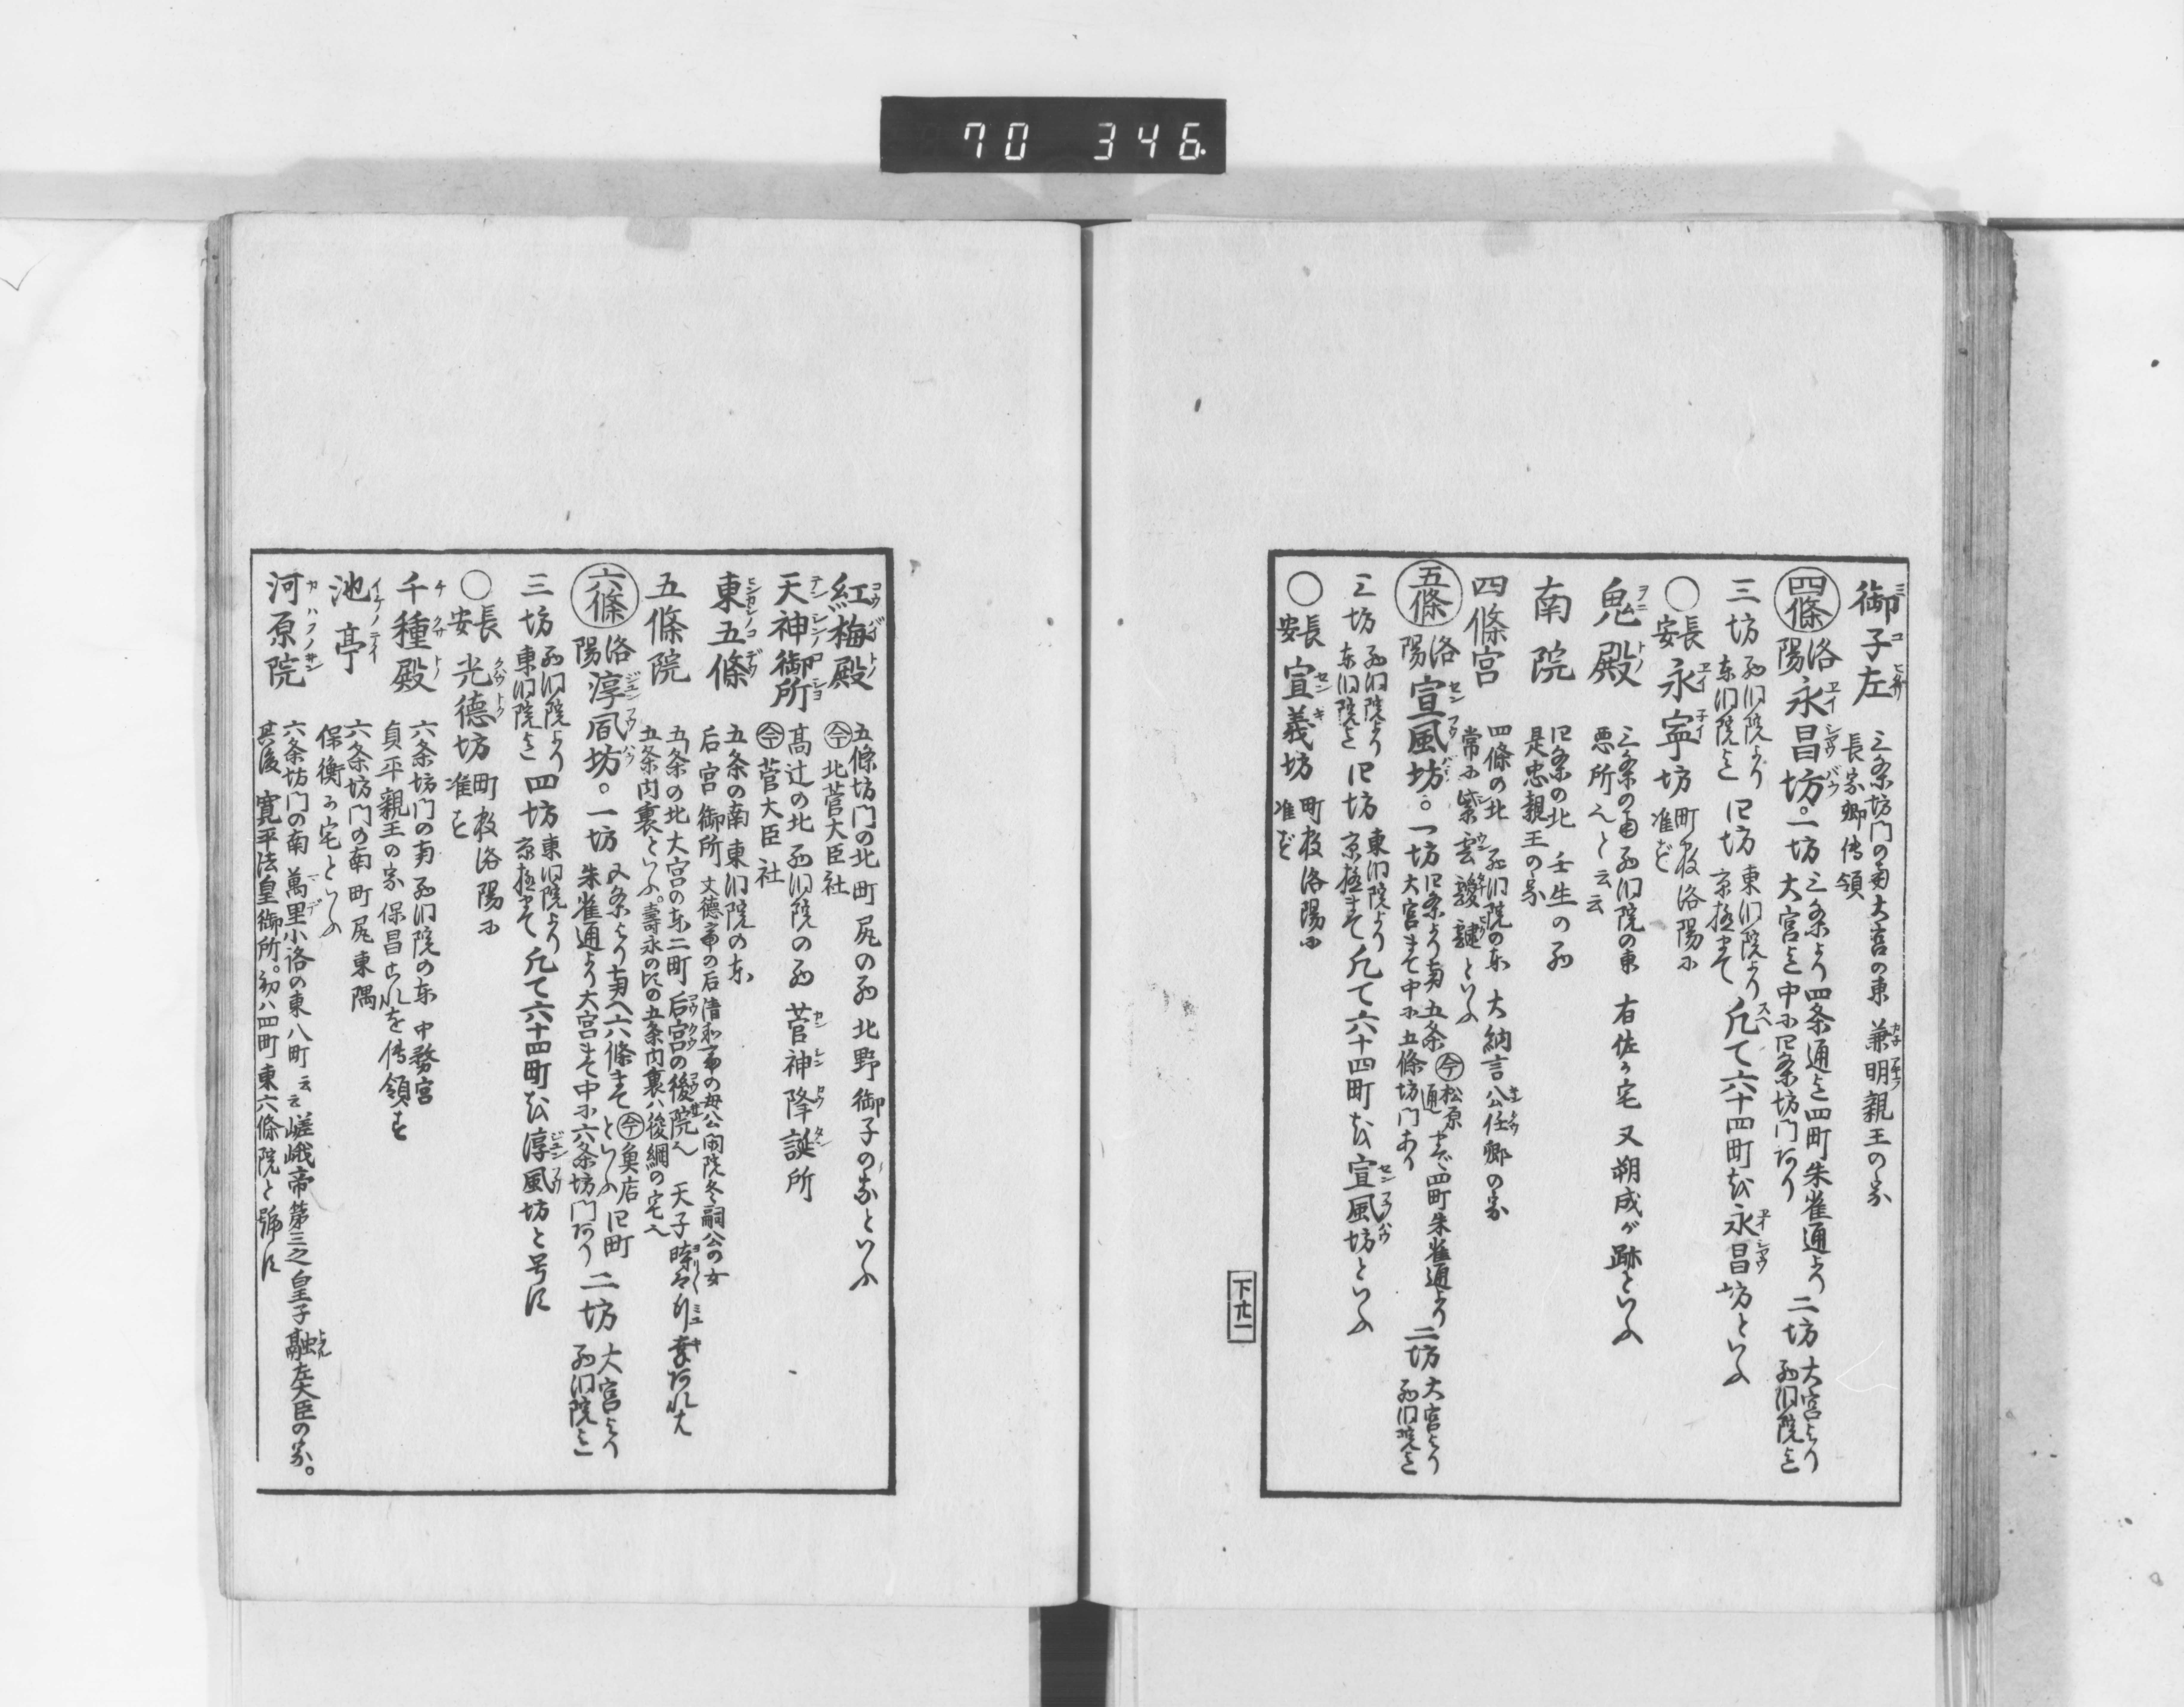 70 346
御子左 三条坊門の南大宮の東 兼明親王の家
長家卿伝領
四條 洛陽 永昌坊。一坊 三条より四条通迄四町朱雀通より 二坊 大宮より
大宮迄中に四条坊門あり 西洞院迄
三坊 西洞院より 四坊 東洞院より 凡て六十四町を永昌坊といふ
東洞院迄 京極まて
○長安 永寧坊 町数洛陽に
准ず
鬼殿 三条の南西洞院の東 有佐か宅 又朔成が跡といふ
悪所也と云云
南院 四条の北 壬生の西
是忠親王の家
四條宮 四條の北 西洞院の東 大納言公任卿の家
常に紫雲といふ
五條 洛陽 宣風坊。一坊 四条より南五条 今松原通 まで四町朱雀通より 二坊 大宮より
大宮まて中に五條坊門あり 西洞院迄
三坊 西洞院より 四坊 東洞院より 凡て六十四町を宣風坊といふ
東洞院迄 京極まて
○長安 宣義坊 町数洛陽に
准ず
下廿一
紅梅殿 五條坊門の北町尻の西 北野御子の家といふ
今北菅大臣社
天神御所 高辻の北西洞院の西 菅神降誕所
今菅大臣社
東五條 五条の南東洞院の東
后宮御所 文徳帝の后清和帝の母公閑院冬嗣公の女
五條院 五条の北大宮の東二町 后宮の後院也 天子時々行幸あれば
五条内裏といふ。壽永の比の五条内裏ハ後綱の宅也
六條 洛陽 淳風坊。一坊 五条より南へ六條まて 今魚店といふ 四町 二坊 大宮より
朱雀通より大宮まて中に六条坊門あり 西洞院迄
三坊 西洞院より 四坊 東洞院より 凡て六十四町を淳風坊と号す
東洞院迄 京極まて
○長安 光徳坊 町数洛陽に
准す
千種殿 六条坊門の南西洞院の東 中務宮
貞平親王の家 保昌これを伝領す
池亭 六条坊門の南町尻東隅
保衡か宅といふ
河原院 六条坊門の南 萬里小洛の東八町云云 嵯峨帝第三之皇子融左大臣の家。
其後 寛平法皇御所。初ハ四町東六條院と号す